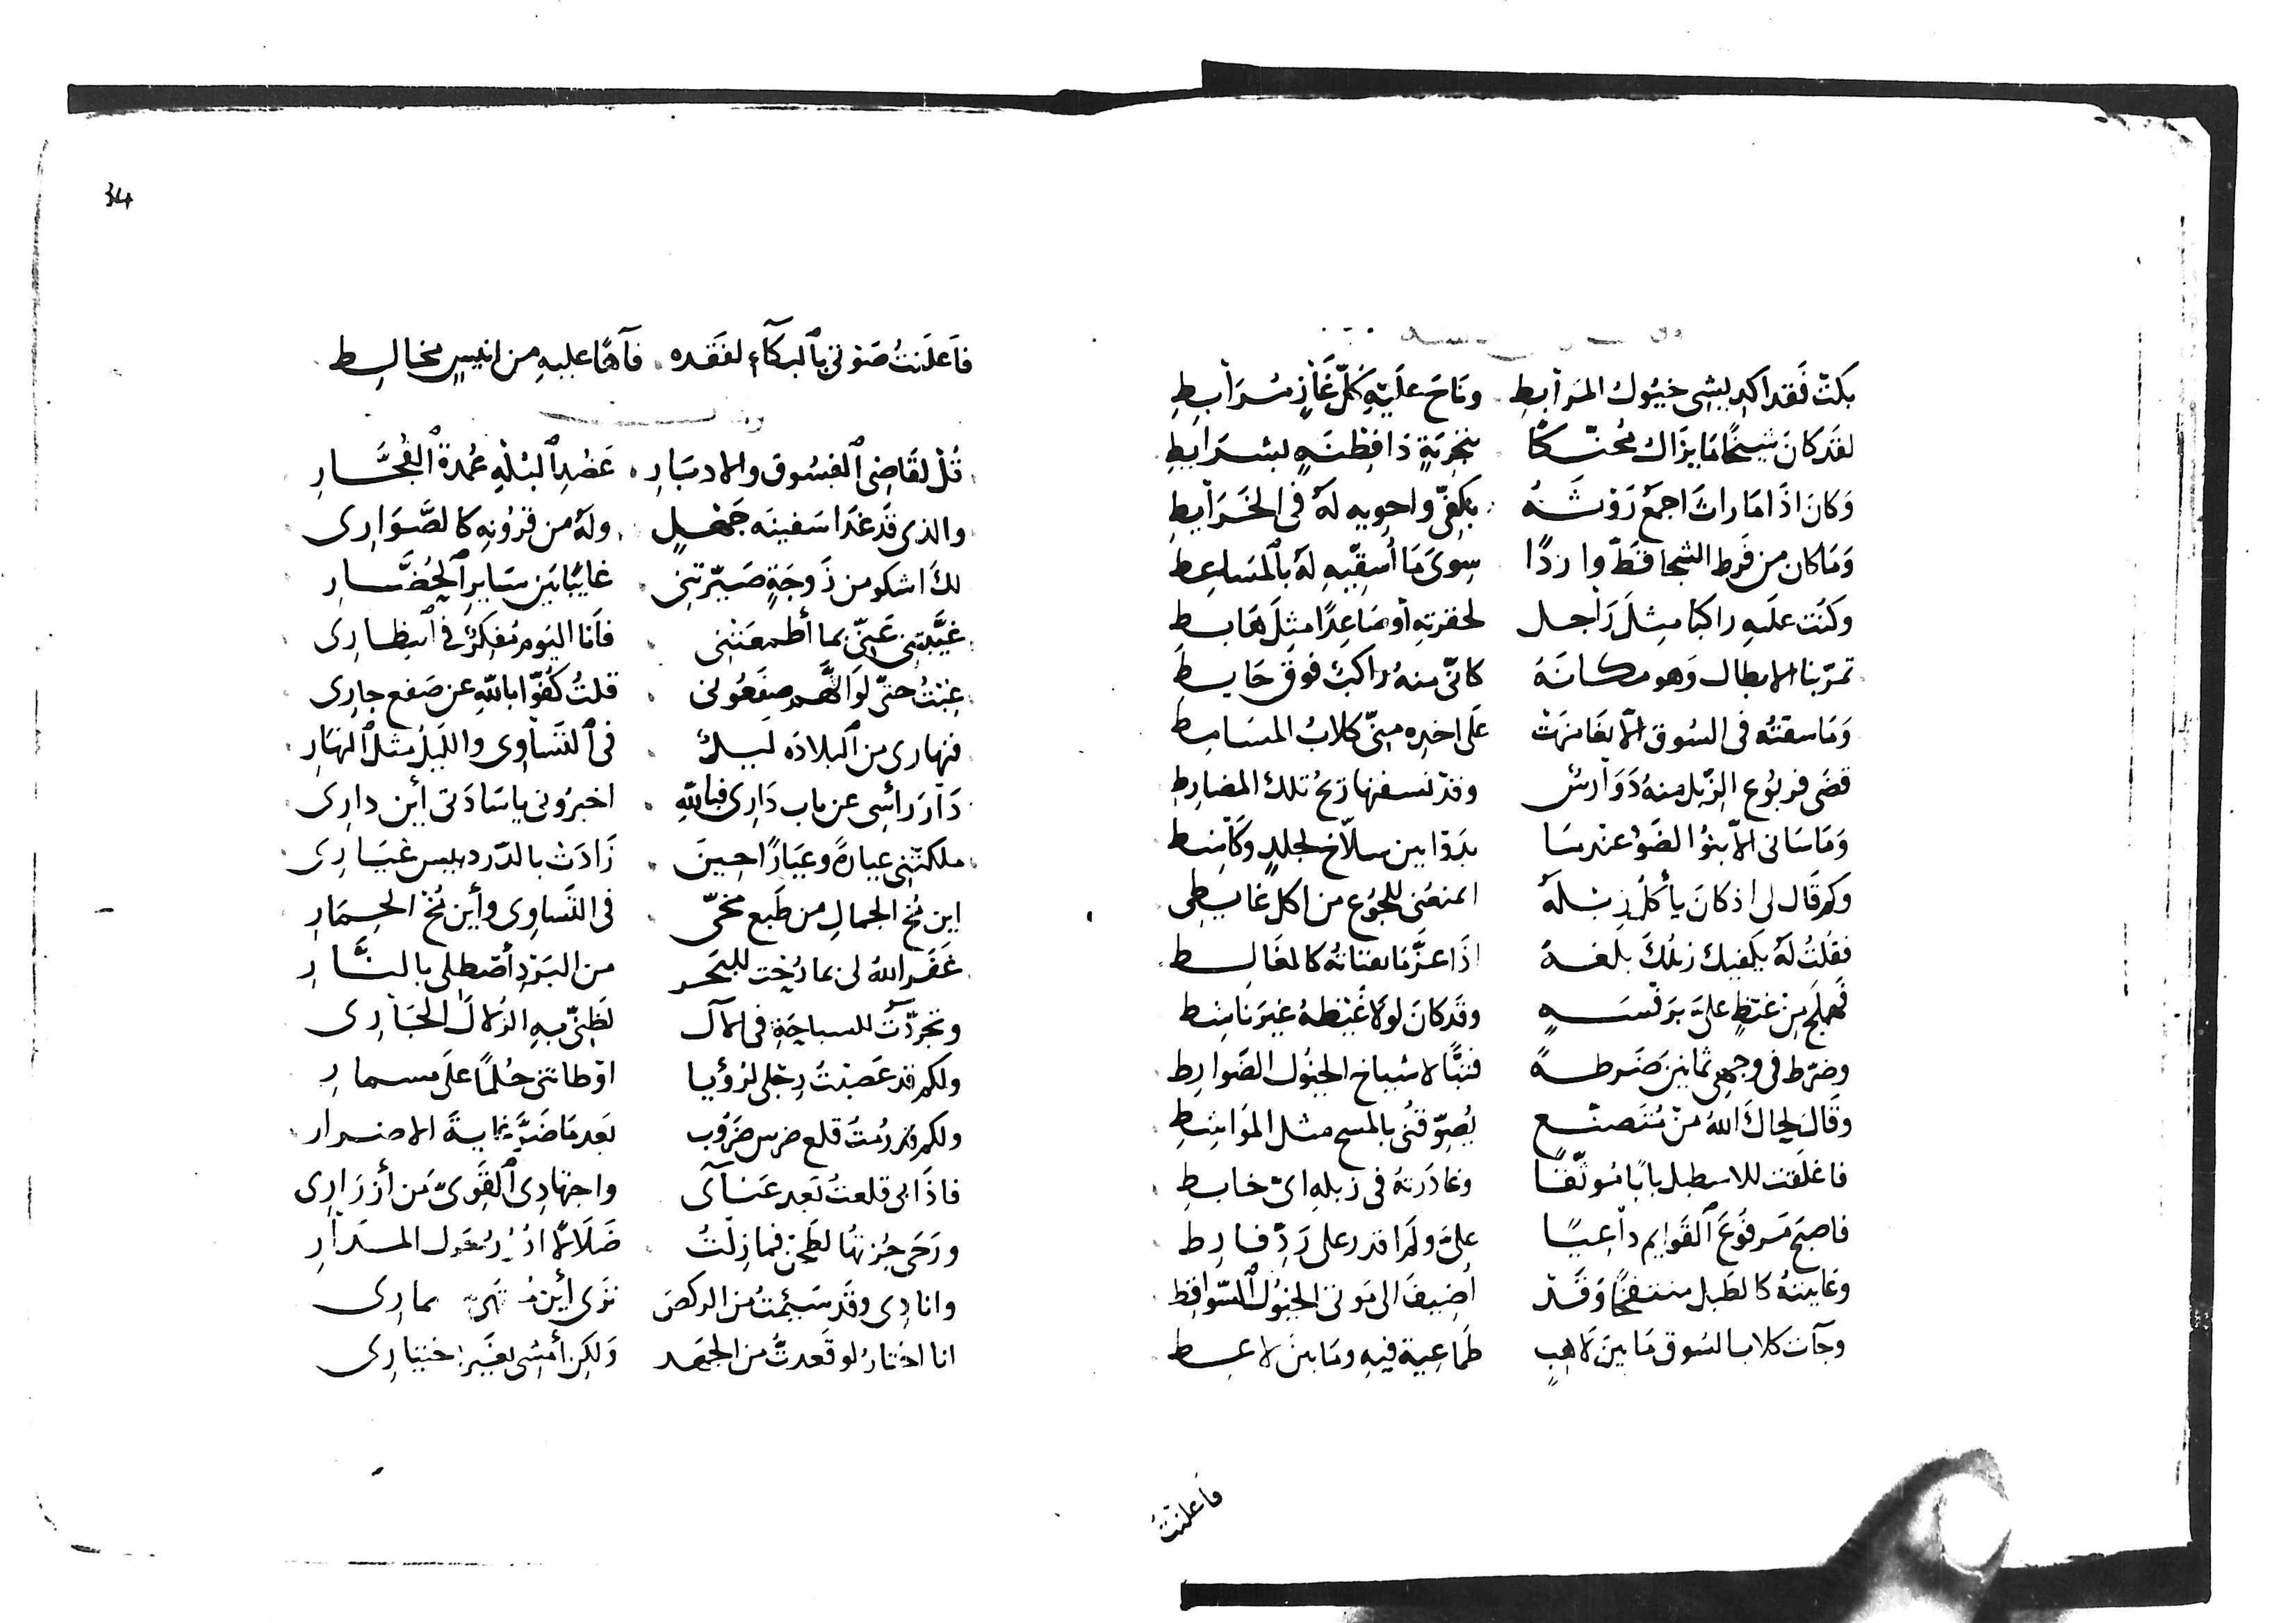 بكت فقد اكديشي خيول المرابط وناح عليه كل غاز مرابط
لقد كان شيخًا ما يزال محنكا بتجربة ذا فطنه بشرايط
وكان اذا ما راث اجمع روثه بكفي واحويه له في الخرايط
وما كان من فرط الشجا قط واردًا سوى ما أسقيه له بالمساعط
وكنت عليه راكبا مثل راجل لحقرته أو صاعدًا مثل هابط
تمر بنا الابطال وهو مكانه كاني منه راكب فوق حايط
وما سقته في السوق الا تغامزت على اخذه مني كلاب المسامط
قضى فربوع الزبل منه دوارس وقد نسفتها ريح تلك المضارط
وما ساني الا بنو الضو عندما بدوا بين سلاخ لجلد وكاشط
وكم قال لي اذ كان يأكل زبله اتمنعني للجوع من اكل غايطي
فقلت له يكفيك زبلك بلغة اذا عز ما تقتاته كالمغالط
فحملج من غيظ علي برفسه وقد كان لولا غيظه غير ناشط
وضرط في وجهي ثمانين ضرطة فتبًّا لاشياخ الخيول الضوارط
وقال لحاك الله من متصنع يصوفني بالمسح مثل المواشط
فاغلقت للاسطبل بابًا موثقًا وغادرته في زبله اي خابط
فاصبح مرفوع القوايم داعيًا علي ولم اقدر على رد فارط
وعاينته كالطبل منتفخًا وقد اضيف الى موتى الخيول السواقط
وجآت كلاب السوق ما بين لاهب طماعية فيه وما بين لاعط
فاعلنت
34
فاعلنت صوتي بالبكآء لفقده فآها عليه من انيس مخالط
قل لقاضي الفسوق والادبار عضد البله عمدة الفجار
والذي قد غدا سفينه جهل وله من قرونه كالصواري
لك اشكو من زوجة صيرتني غايبًا بين ساير الحضار
غيبتني عني بما أطعمتني فانا اليوم مفكر في انتظاري
غبت حتى لو انهم صفعوني قلت كفوا بالله عن صفع جاري
فنهاري من البلاده ليل في التساوي والليل مثل النهار
دار رأسي عن باب داري فبالله اخبروني يا سادتي أين داري
ملكتني عيارة وعيارًا حين زادت بالدردبيس غياري
اين مخ الجمال من طبع مخي في التساوي وأين مخ الحمار
غفر الله لي بما رحت للبحر من البرد أصطلي بالنار
وتجردت للسباحة في الآل لظني به الزلال الجاري
ولكم قد عصبت رجلي لرؤيا اوطاتني حلمًا على مسمار
ولكم قد رمت قلع ضرس ضروب بعد ما ضر بي غاية الاضرار
فاذا بي قلعت بعد عنآي واجتهادي القوي من أزراري
ورحى جزتها لطحن فما زلت ضلالا ادور حول المدار
وانادي وقد سيمت من الركض ترى أين منتهى مماري
انا اختار لو قعدت من الجهد ولكن أمشي بغير اختياري